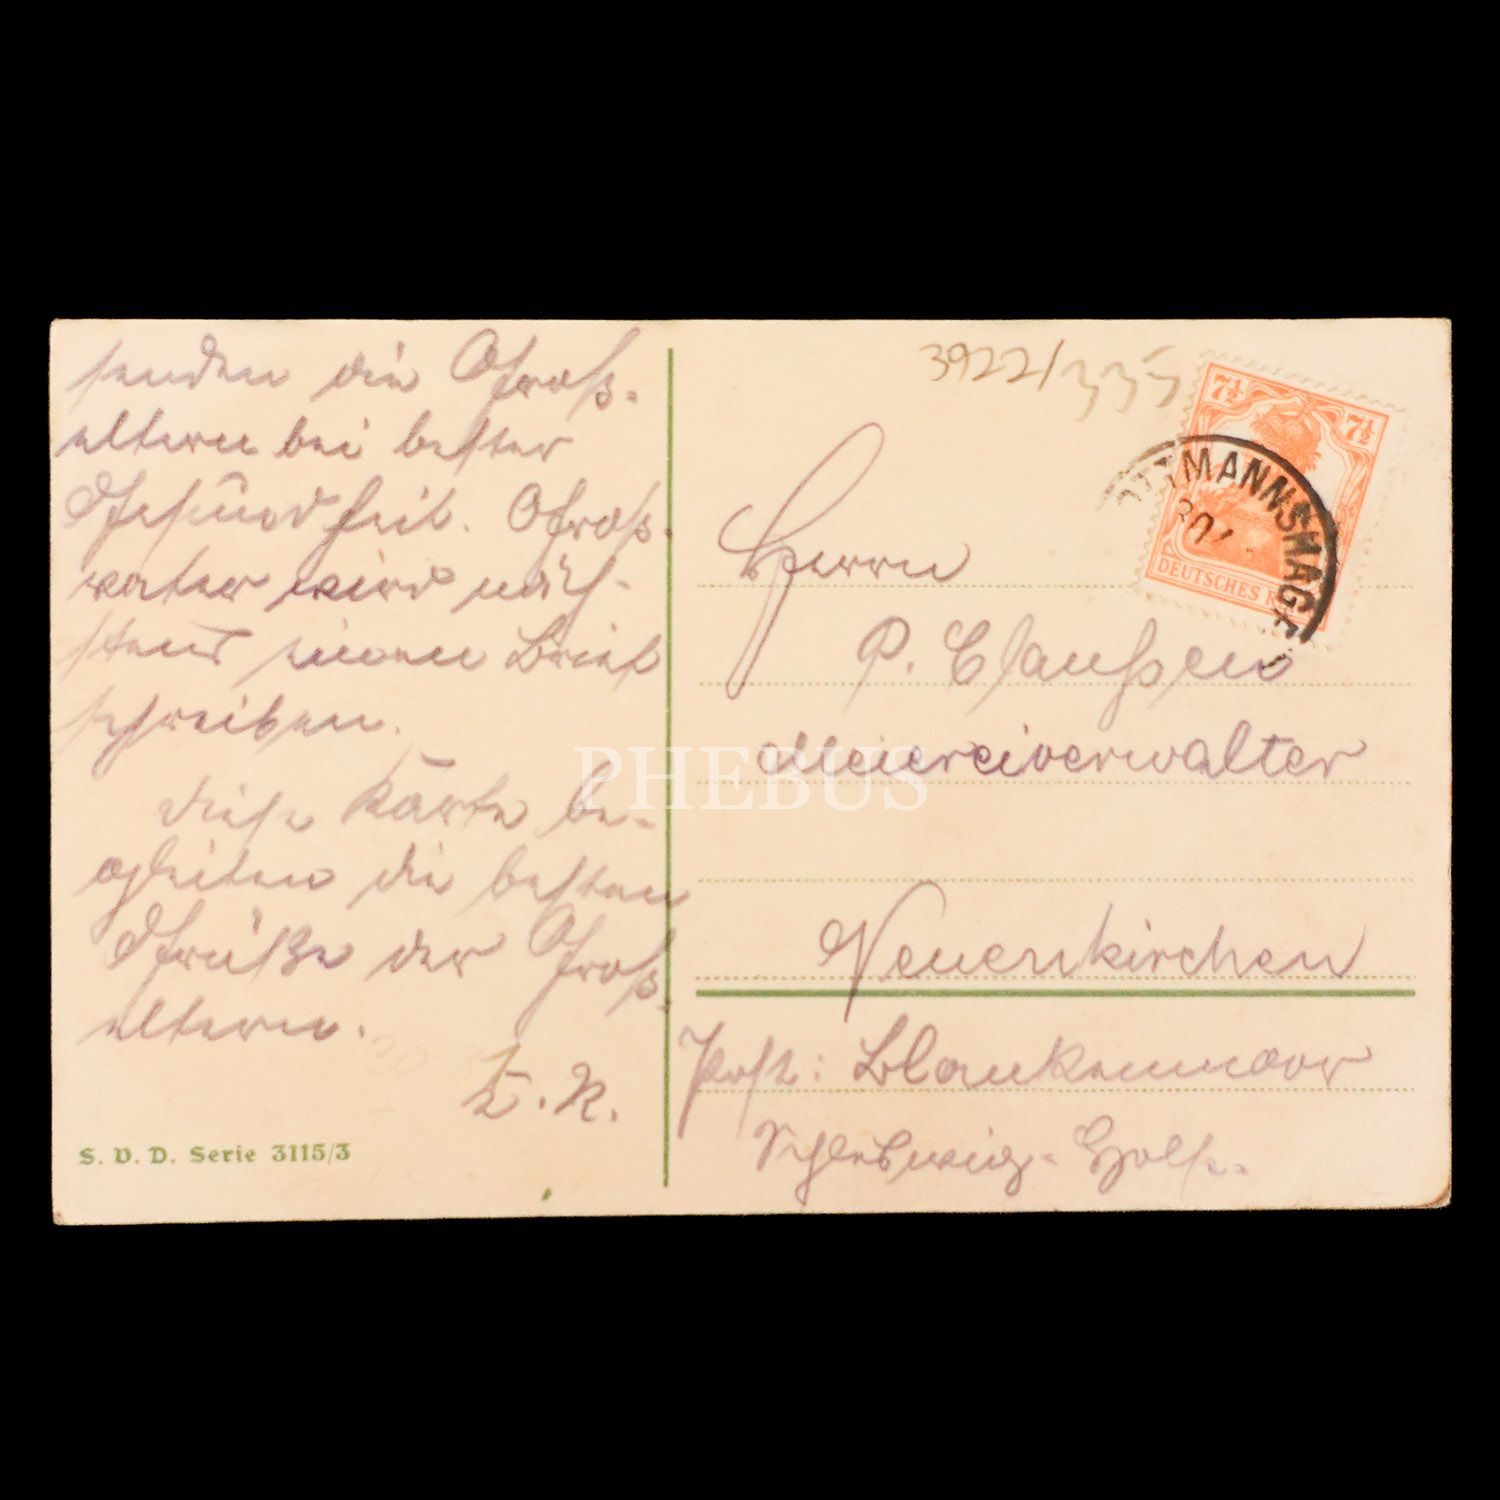 senden die Groß-
eltern bei bester
Gesundheit. Groß-
vater wird näch-
stens einen Brief
schreiben.
Diese Karte be-
gleiten die besten
Grüße der Groß-
eltern.
S. V. D. Serie 3115/3
3922/335
7½ 7½
DEUTSCHES
MANNSHAG
Herrn
P. Claußen
Meiereiverwalter
Neuenkirchen
Post: Blankenmoor
Schleswig-Holst.
PHEBUS